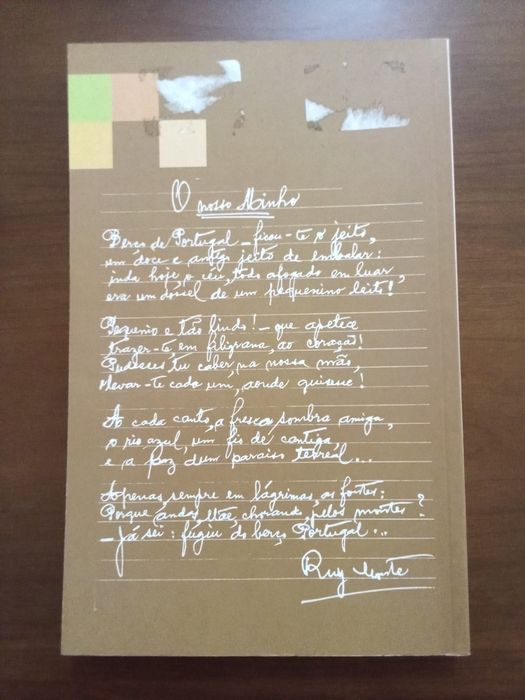 O nosso Minho
Berço de Portugal – ficou-te o jeito,
um doce e antigo jeito de embalar:
inda hoje o céu, todo afogado em luar,
era um dossel de um pequenino leito!
Pequenino e tão lindo! – que apetece
trazer-te, em filigrana, ao coração!
Pudesses tu caber, na nossa mão,
levar-te cada um, aonde quisesse!
A cada canto, a fresca sombra amiga,
o rio azul, um fio de cantiga
e a paz dum paraíso terreal...
Apenas, sempre em lágrimas, as fontes:
Porque andas, Mãe, chorando, pelos montes?
– Já sei: fugiu do berço Portugal...
Ruy